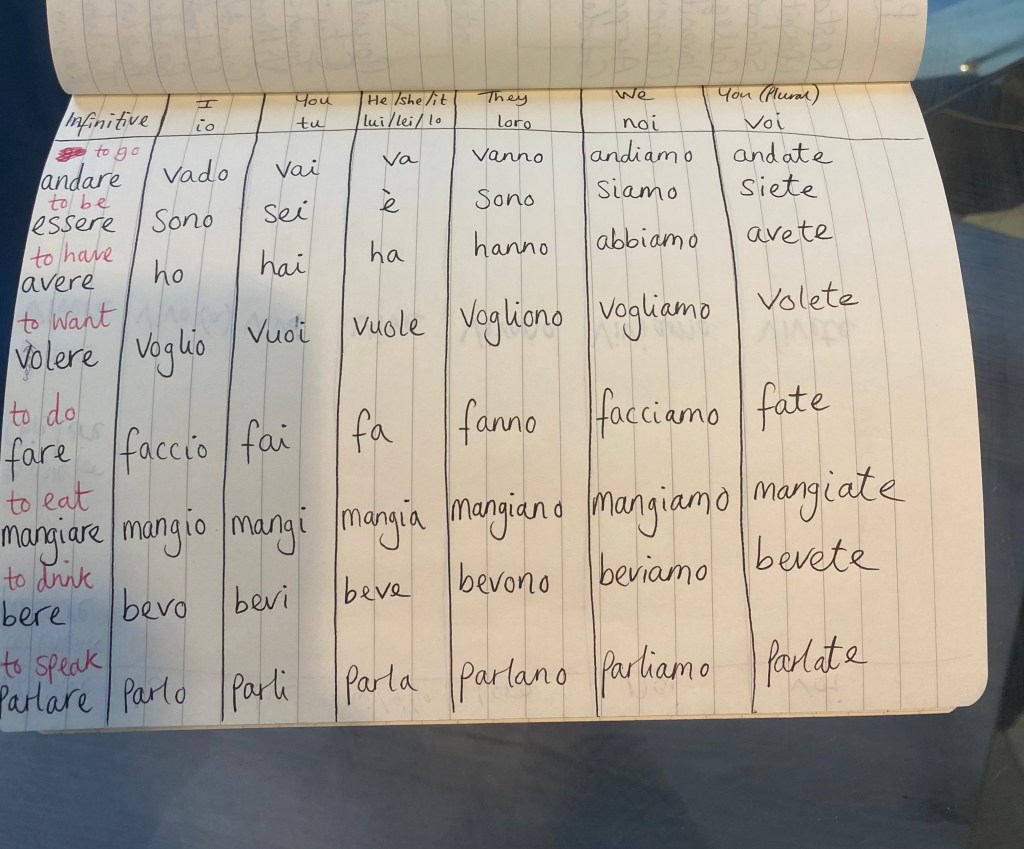 I You He/she/it They We You (Plural)
Infinitive io tu lui/lei/lo loro noi voi
to go
andare vado vai va vanno andiamo andate
to be
essere sono sei è sono siamo siete
to have
avere ho hai ha hanno abbiamo avete
to want
volere voglio vuoi vuole vogliono vogliamo volete
to do
fare faccio fai fa fanno facciamo fate
to eat
mangiare mangio mangi mangia mangiano mangiamo mangiate
to drink
bere bevo bevi beve bevono beviamo bevete
to speak
parlare parlo parli parla parlano parliamo parlate